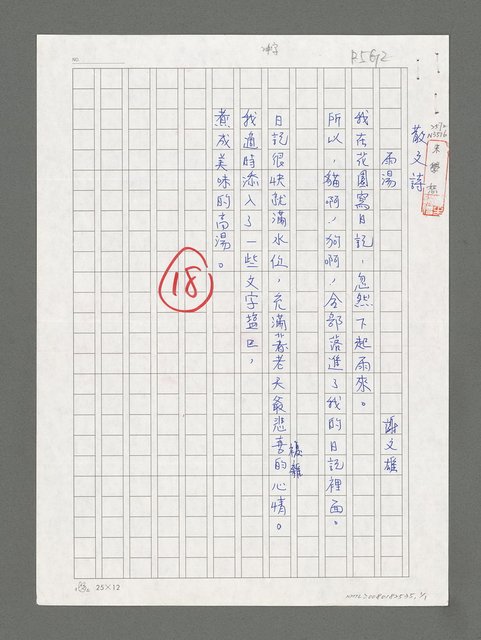 NO.
冲字
P.562
散文詩
雨湯
謝文雄
我在花園寫日記，忽然下起雨來。
所以，貓啊，狗啊，全部落進了我的日記裡面。
日記很快就滿水位，充滿著老天爺悲喜的心情。
複雜
我適時添入了一些文字鹽巴，
煮成美味的高湯。
18
25×12